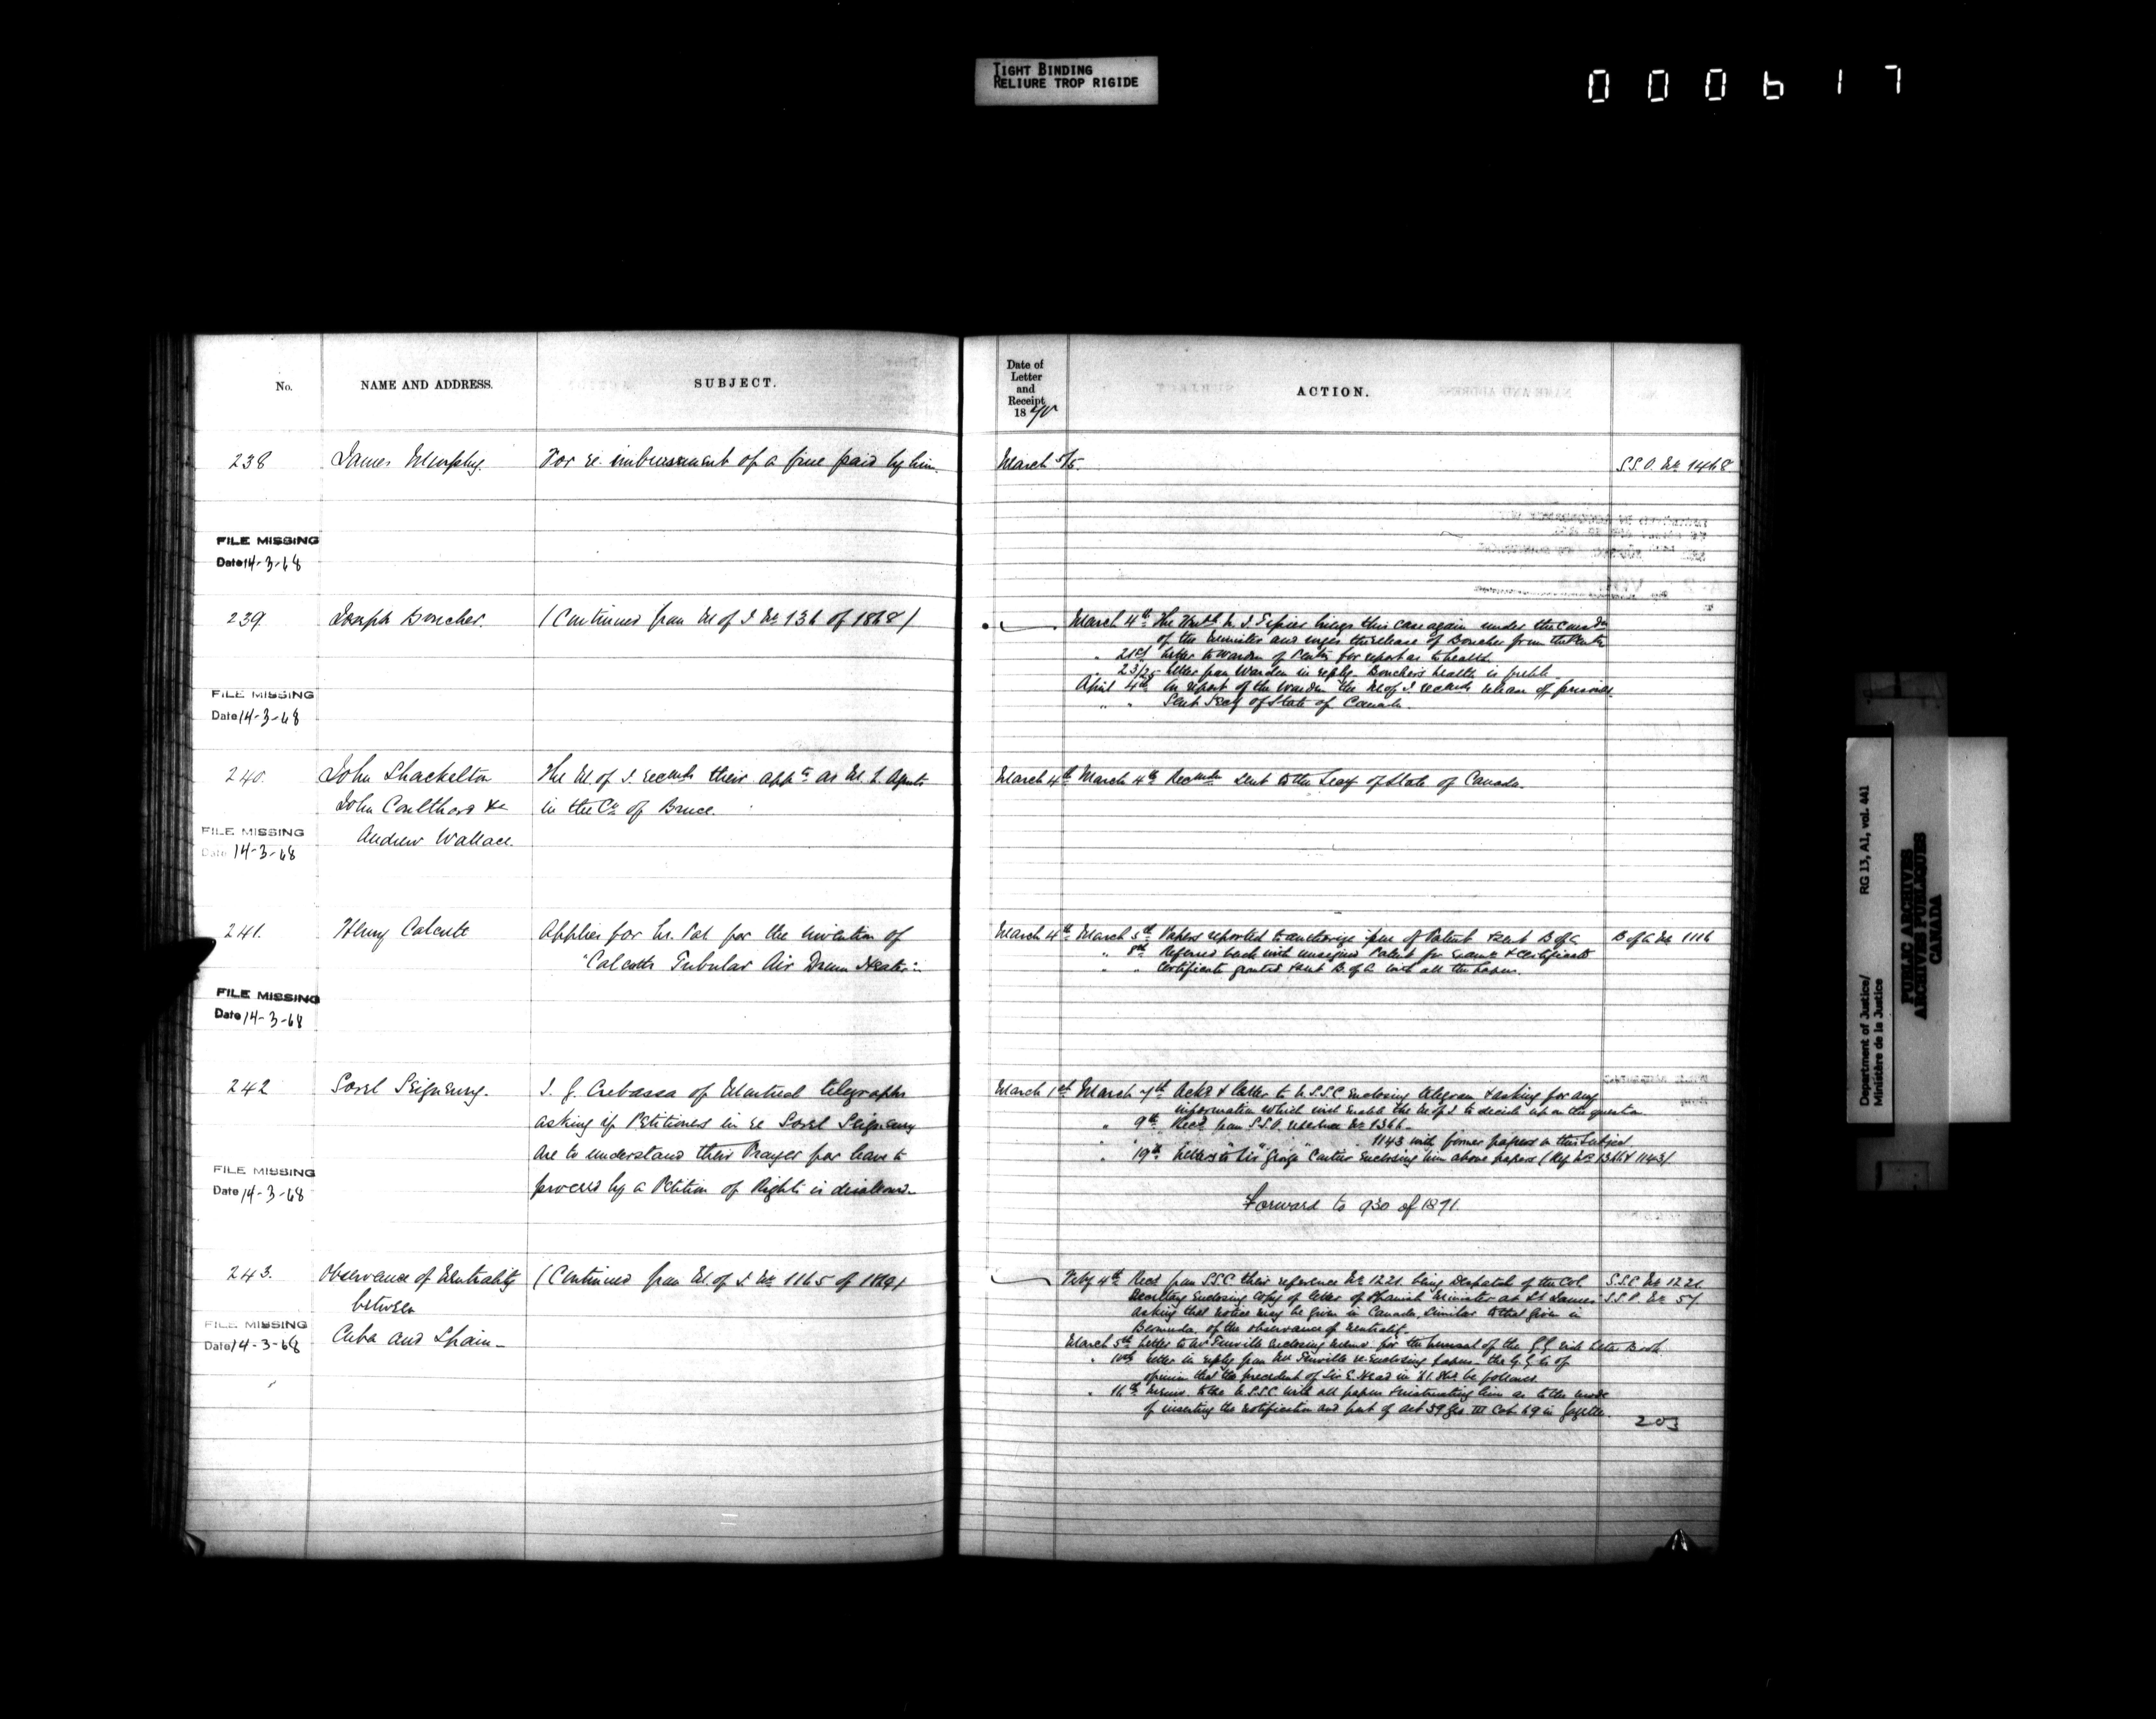 TIGHT BINDING
RELIURE TROP RIGIDE
000617
No.
NAME AND ADDRESS.
SUBJECT.
Date of
Letter
and
Receipt
1870
ACTION.
238
James Murphy.
For re-imbursement of a fine paid by him.
March 5/5.
S.S.O. No 1468
FILE MISSING
Date 14-3-68
239
Joseph Boucher.
(Continued from M. of J. No 136 of 1868)
March 4th The Honble brings this case again under the
of the Minister and urges the release of Boucher from the
" 21st Letter to Warden of Penity for report as to health
23/25 Letter from Warden in reply. Boucher's health is feeble.
April 4th On report of the Warden the M. of J. recmds release of prisoner.
" " Sent Secy of State of Canada.
FILE MISSING
Date 14-3-68
240.
John Shackelton
John Coulthard &
Andrew Wallace.
The M. of J. recmds their appt as M. L. Agents
in the Co of Bruce.
March 4th
March 4th Recmdn sent to the Secy of State of Canada.
FILE MISSING
Date 14-3-68
241.
Henry Calcutt
Applies for Lr. Pat. for the invention of
"Calcutt's Tubular Air Drum Heater"
March 4th
March 5th Papers reported to authorize issue of Patent & sent B of A
" 8th Referred back with unsigned Patent for & certificate
" " Certificate granted & sent B. of A. with all the papers.
B of A No 1116
FILE MISSING
Date 14-3-68
242
Sorel Seigneury.
J. G. Crebassa of Montreal telegraphs
asking if Petitioners in re Sorel Seigneury
are to understand their Prayer for leave to
proceed by a Petition of Right is disallowed.
March 1st
March 7th Ackd & letter to U.S.S.C. enclosing telegram & asking for any
information which will enable the M of J. to decide upon the question
" 9th Recd from S.S.O. reference No 1366.
" " " " 1143 with former papers on this subject.
" 19th Letter to Sir George Cartier enclosing him above papers (Ref. Nos 1366 & 1143)
Forward to 930 of 1871.
FILE MISSING
Date 14-3-68
243.
Observance of Neutrality
between
Cuba and Spain-
(Continued from M. of J. No 1165 of 1869)
Feby 4th Recd from S.S.C. their reference No 1221 being Despatch of the Col.
Secretary enclosing copy of letter of Spanish Minister at St James
asking that notice may be given in Canada, similar to that given in
Bermuda, of the observance of neutrality.
March 5th Letter to Mr Turville enclosing memo for the perusal of the G.G. vide Letter Book.
" 10th Letter in reply from Mr Turville re-enclosing papers. the G.G. is of
opinion that the precedent of Sir E. Head in 1861 be followed.
" 11th Memo. to the U.S.S.C. with all papers & instructing him as to the mode
of inserting the notification and part of Act 59 Geo III Cap. 69 in Gazette.
S.S.C. No 1221.
S.S.O. No 57.
FILE MISSING
Date 14-3-68
203
Department of Justice/
Ministère de la Justice
RG 13, A1, vol. 441
PUBLIC ARCHIVES
ARCHIVES PUBLIQUES
CANADA